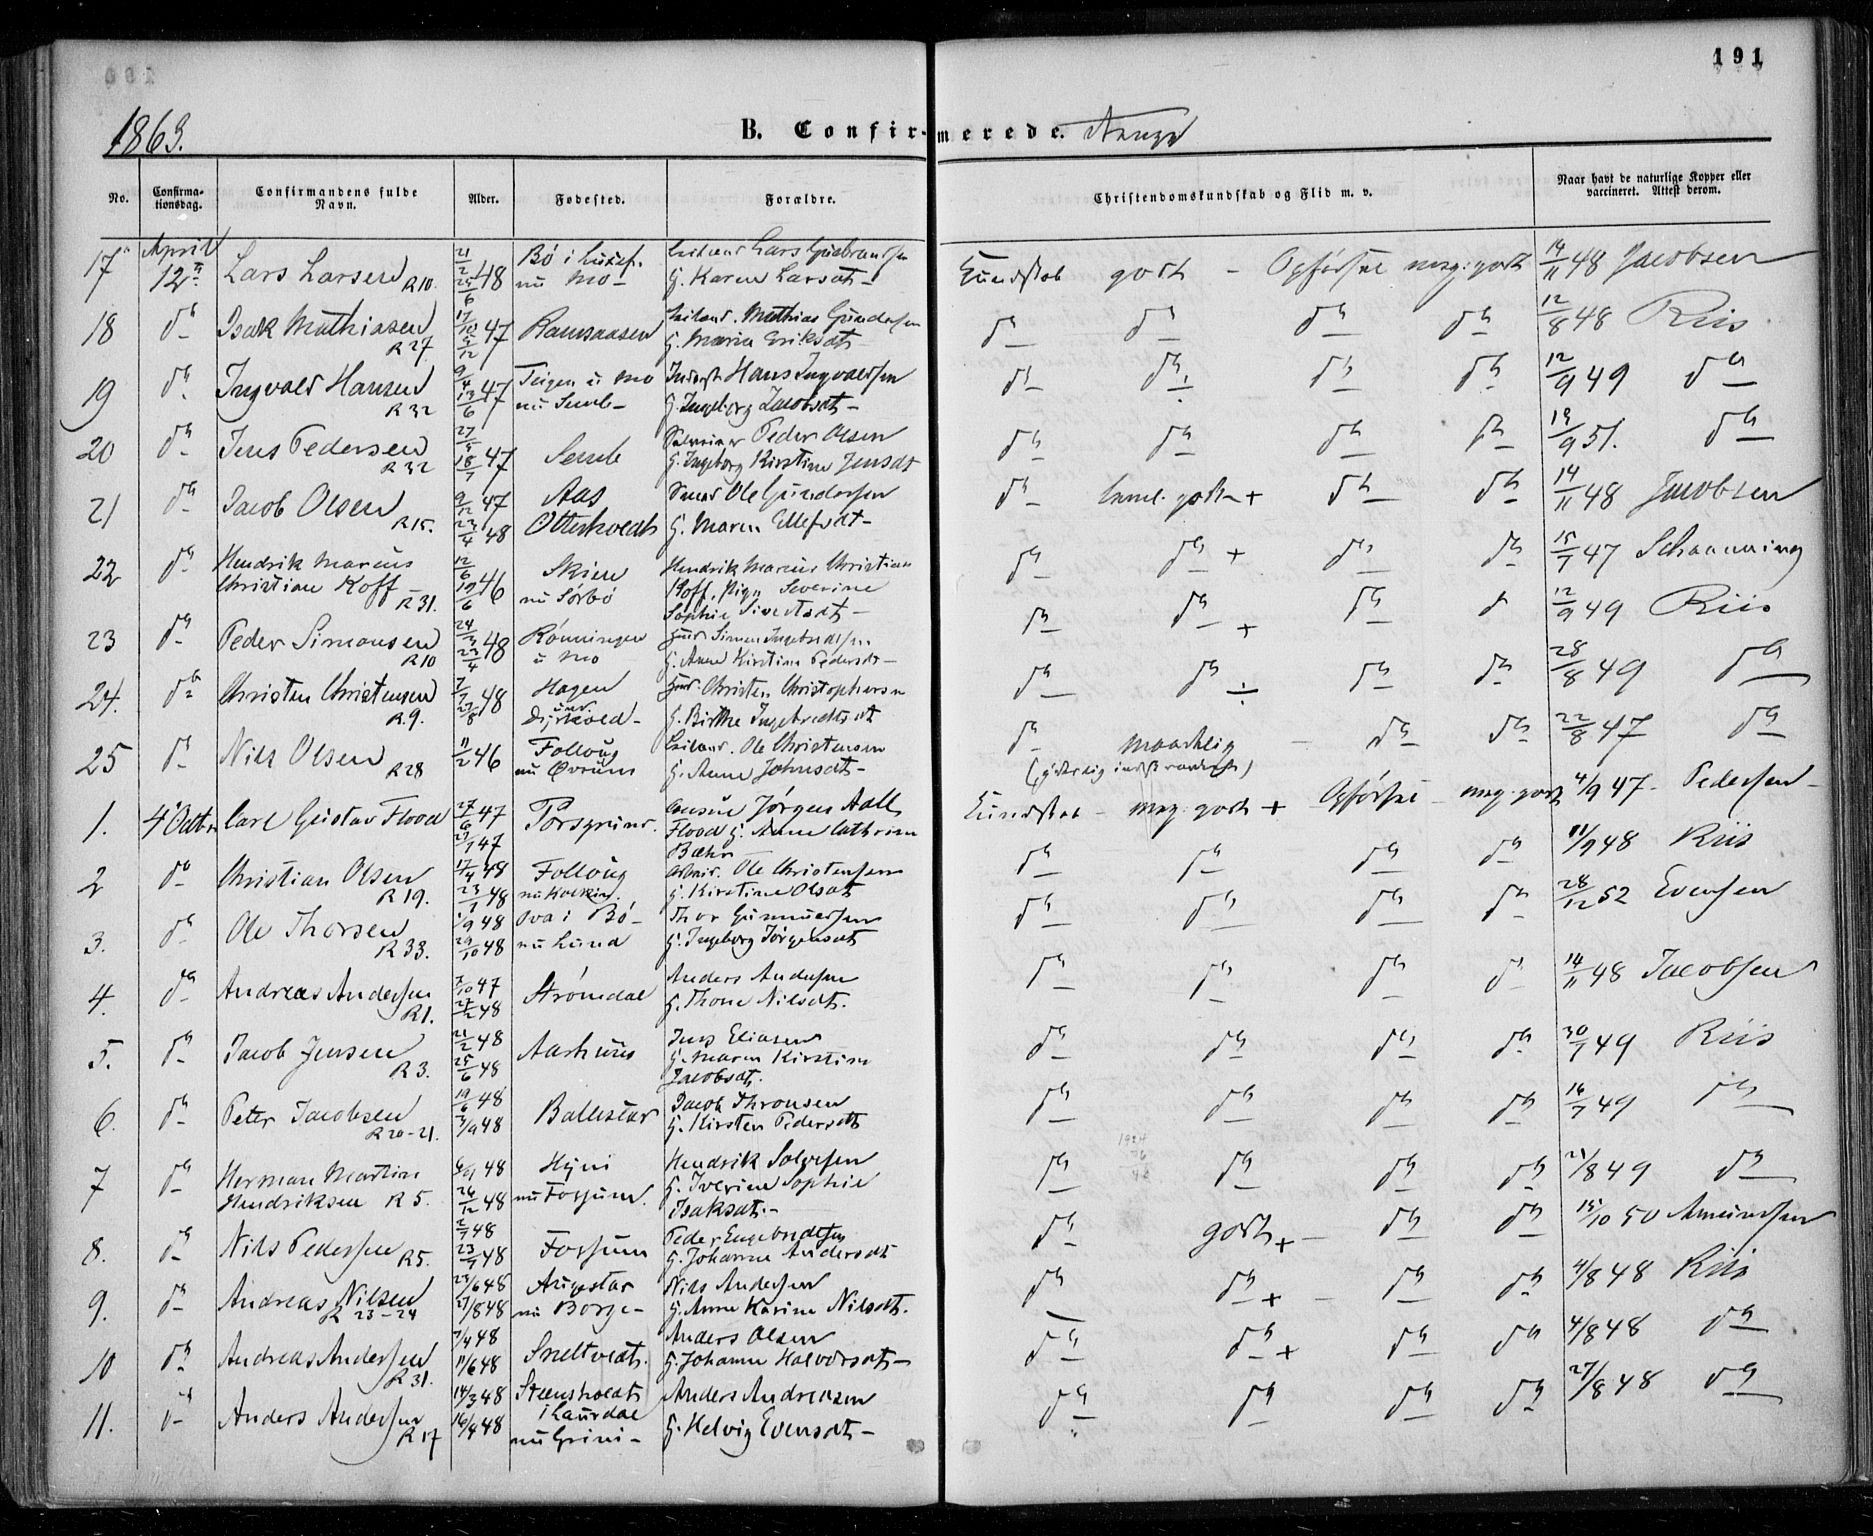 191
1863.
B. Confirmerede.
No.
Confirma-
tionsdag.
Confirmandens fulde
Navn.
Alder.
Fødested.
Forældre.
Christendomskundskab og Flid m. v.
Naar havt de naturlige Kopper eller
vaccineret. Attest derom.
17 April 12te Lars Larsen R 10. 21/2 25/6 48 Bø i nu Mo- Lars Gulbrandsen G. Karen Larsdt- Kundskab godt - Opførsel meg: godt 14/11 48 Jacobsen
18 do Isak Mathiasen R 27. 17/10 5/12 47 Ramsaasen Mathias Gundersen G. Maria Eriksdt do do do do 12/8 48 Riis
19 do Ingvald Hansen R 32 9/4 13/6 47 Teigen u Mo nu Semb- Hans Ingvaldsen G. Ingeborg Jacobsdt- do do ÷ do do 12/9 49 do
20 do Jens Pedersen R 32 27/5 18/7 47 Semb Peder Olsen G. Ingeborg Kirstine Jensdt do do do do 19/9 51. do
21 do Jacob Olsen R 15. 9/12 47 23/4 48 Aas Otterholdt Ole Gundersen G. Maren Ellefsdt- do godt + do do 14/11 48 Jacobsen
22 do Hendrik Marcus Christian Koff R 31. 12/6 19/6 46 Skien nu Sørbø Hendrik Marcus Christian Koff, Pige Severine Sophie Sivertsdt- do do + do do 15/7 47 Schanning
23 do Peder Simonsen R 10 24/3 23/4 48 Rønningen u Mo Simen Ingebretsen G. Anne Kirstine Pedersdt- do do + do do 12/9 49 Riis
24. do Christen Christensen R. 9. 7/7 27/8 48 Hagen und. Christen Christophersen G. Birthe Ingebretsdt do do ÷ do do 28/8 49 do
25 do Nils Olsen R 28 11/2 46 Folloug nu Øvrum Ole Christensen G. Anne Johnsdt- do maadelig - do do 22/8 47 do
1. 4 Octbr Carl Gustav Flood 27/6 47 47 Porsgrund. Consul Jørgen Aall Flood G. Anne Cathrine Bæhr Kundskab - meg: godt + Opførsel - meg: godt 4/9 47. Pedersen-
2 do Christian Olsen R 19. 17/4 48 23/7 48 Folloug Ole Christensen G. Kirstine Olsdt do do do do 11/9 48 Riis
3. do Ole Thorsen R 33. 1/9 48 29/10 48 i Bø- nu Lund Thor Gunnersen G. Ingeborg Jørgensdt do do do do 28/12 52 Evensen
4. do Andreas Andersen R 1. 7/10 47 27/2 48 Strømdal Anders Andersen G. Thone Nilsdt. do do do do 14/11 48 Jacobsen
5. do Jacob Jensen R 3. 21/2 48 25/6 48 Aarhuus Jens Eliasen G. Maren Kirstine Jacobsdt. do do do do 30/7 49 Riis
6. do Peter Jacobsen R 20-21. 19/6 48 3/9 48 Ballestad Jacob Thronsen G. Kirsten Pedersdt do do do do 16/7 49 do
7 do Herman Martin Hendriksen R 5. 48 26/12 48 Hyni nu Fossum. Hendrik Solvesen G. Iverine Sophie Isaksdt.- do do do do 21/8 49 do
8. do Nils Pedersen R 5. 2/7 48 23/7 48 Fossum Peder Engebretsen G. Johanne Andersdt do godt + - do do 15/10 50 Amundsen
9. do Andreas Nilsen R 23-24 24/6 48 27/8 48 Augestad nu Borge- Nils Andersen G. Anne Karine Nilsdt. do do + - do do 4/8 48 Riis
10 do Andreas Andersen R 31. 7/4 48 11/6 48 Sneltvedt. Anders Olsen G. Johanne Halvorsdt- do do + do do 4/8 48 do
11. do Anders Andersen R 17 14/3 48 16/4 48 Steensholdt i Laurdal nu Grini- Anders Andreasen G. Helvig Evensdt- do do do do 27/8 48 do